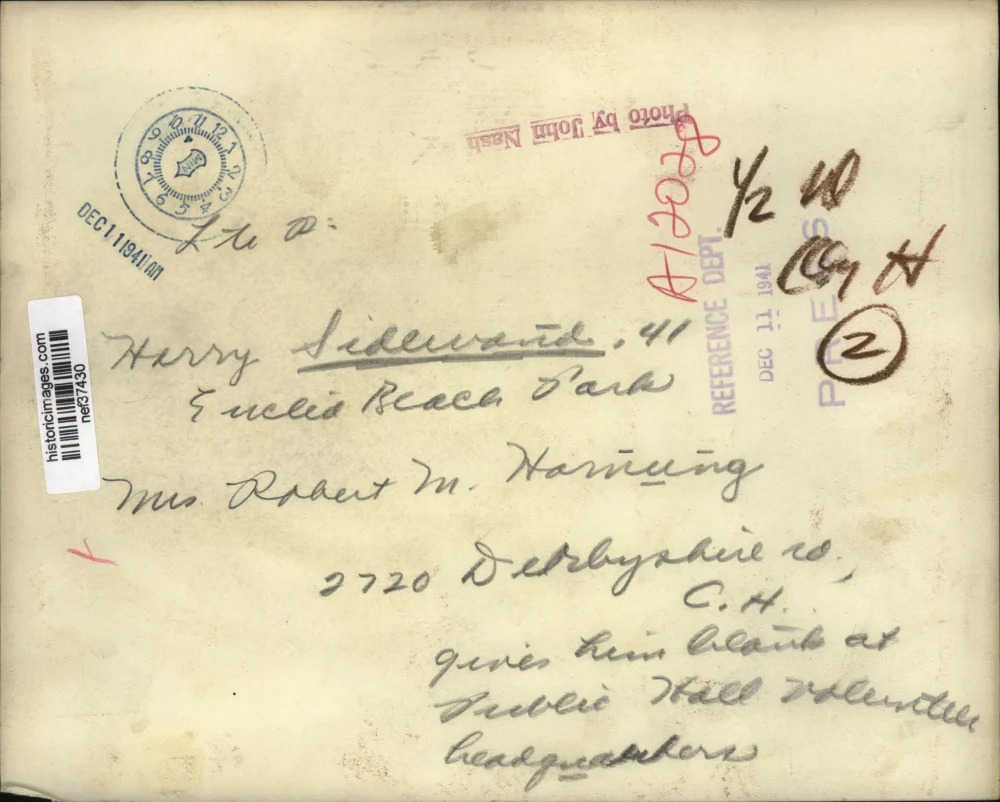 10 11 12 1 2 3 4 5 6 7 8 9
DEC 11 1941 AM
Photo by John Nash
A12028
REFERENCE DEPT.
DEC 11 1941
PRESS
1/2
H
2
historicimages.com
nef37430
L to R:
Harry Sidlewand, 41
Euclid Beach Park
Mrs Robert M. Hornung
2720 Derbyshire rd,
C.H.
gives him blank at
Public Hall volunteer
headquarters